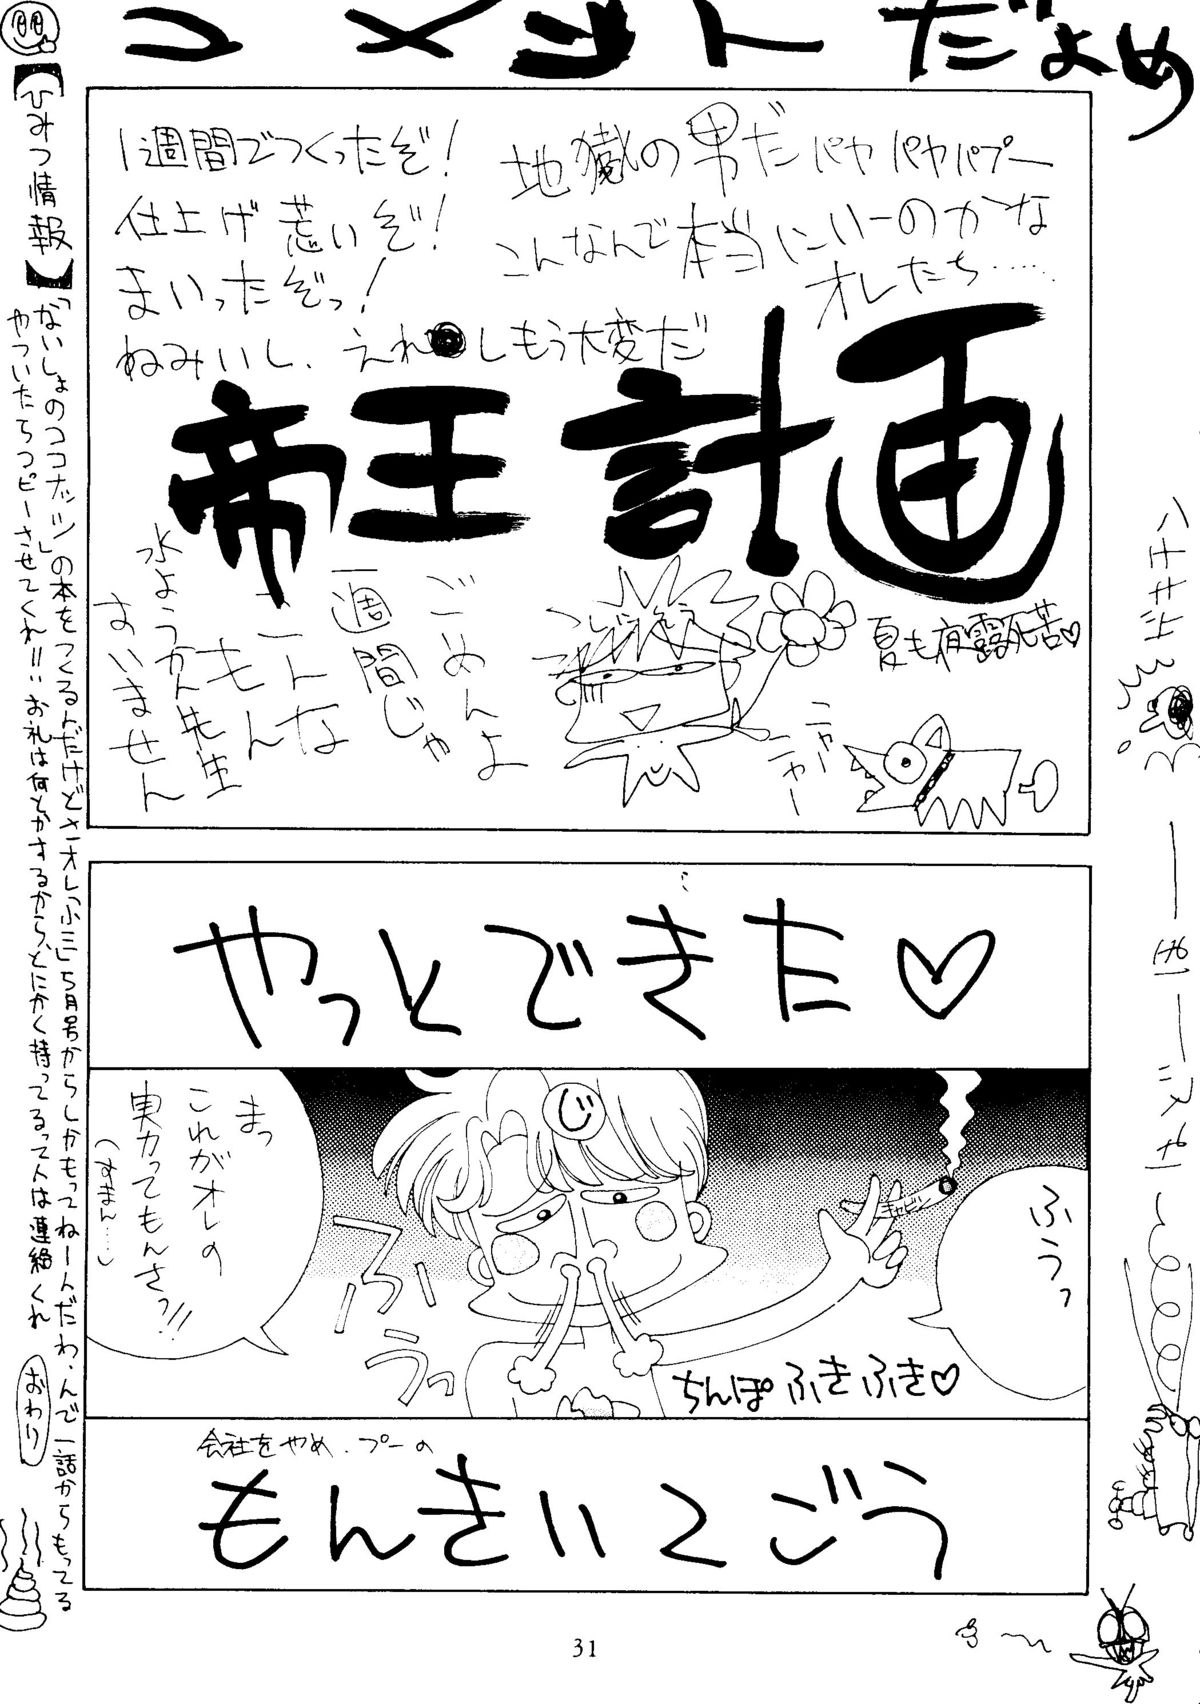 コメントだよめ
地獄の男だパヤパヤパプー
こんなんで本当にいーのかな
オレたち……
1週間でつくったぞ!
仕上げ荒いぞ!
まいったぞっ!
ねみいし、えれ
しもう大変だ
帝王計画
夏も夜露死苦♡
ニャーニャー
ごめんよ
一週間じゃ
こんな
もんもん
水ようかん先生
すいません
やっとできた♡
ふうっ
キャビン
じ
ふーうっ
まっ
これがオレの
実力ってもんさっ!!
(すまん……)
ちんぽふきふき♡
会社をやめ、プーの
もんきい2ごう
【ひみつ情報】
「ないしょのココナッツ」の本をつくるんだけどさーオレ「ふぁに」5月号からしかもってねーんだわ、んで一話からもってる
やついたらコピーさせてくれ!!お礼は何とかするから、とにかく持ってるって人は連絡くれ
おわり
31